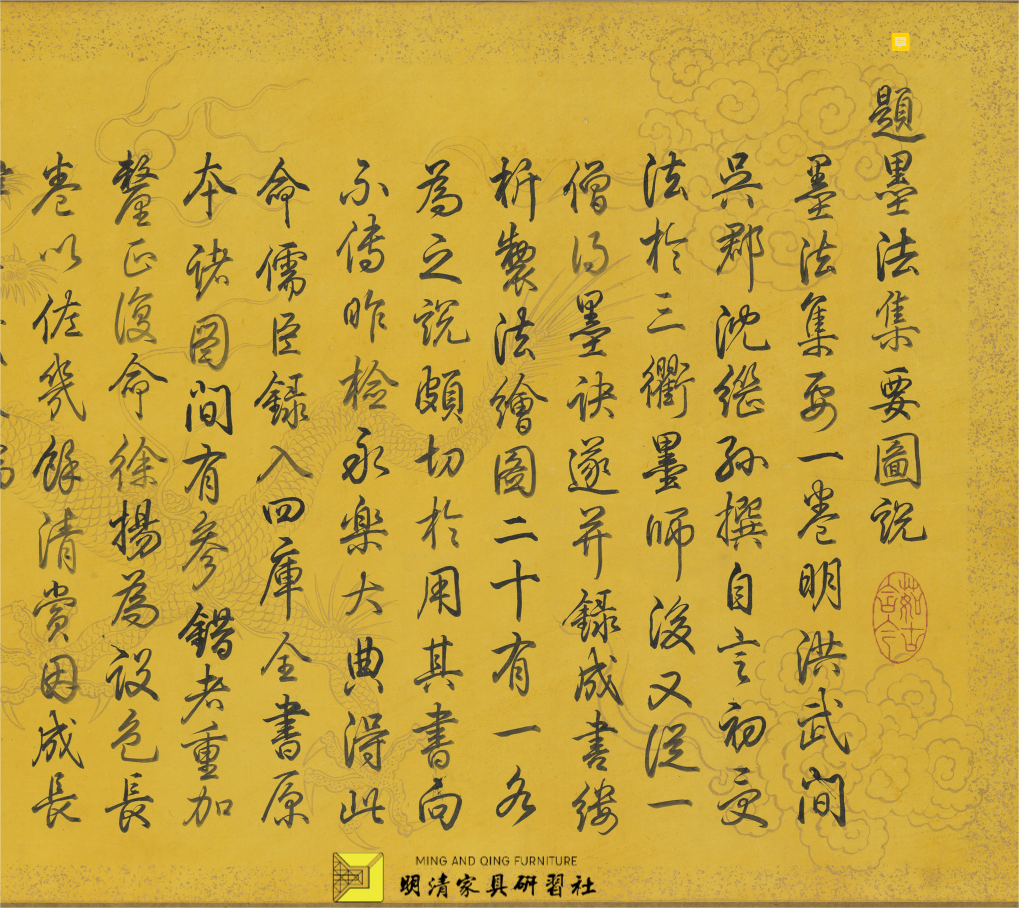 題墨法集要圖說
茹古含今
墨法集要一卷明洪武間
吳郡沈繼孫撰自言初受
法於三衢墨師後又從一
僧得墨訣遂并錄成書縷
析製法繪圖二十有一各
為之說頗切於用其書向
不傳昨檢永樂大典得此
命儒臣錄入四庫全書原
本諸圖間有參錯者重加
釐正復命徐揚為設色長
卷以佐幾餘清賞因成長
MING AND QING FURNITURE
明清家具研習社